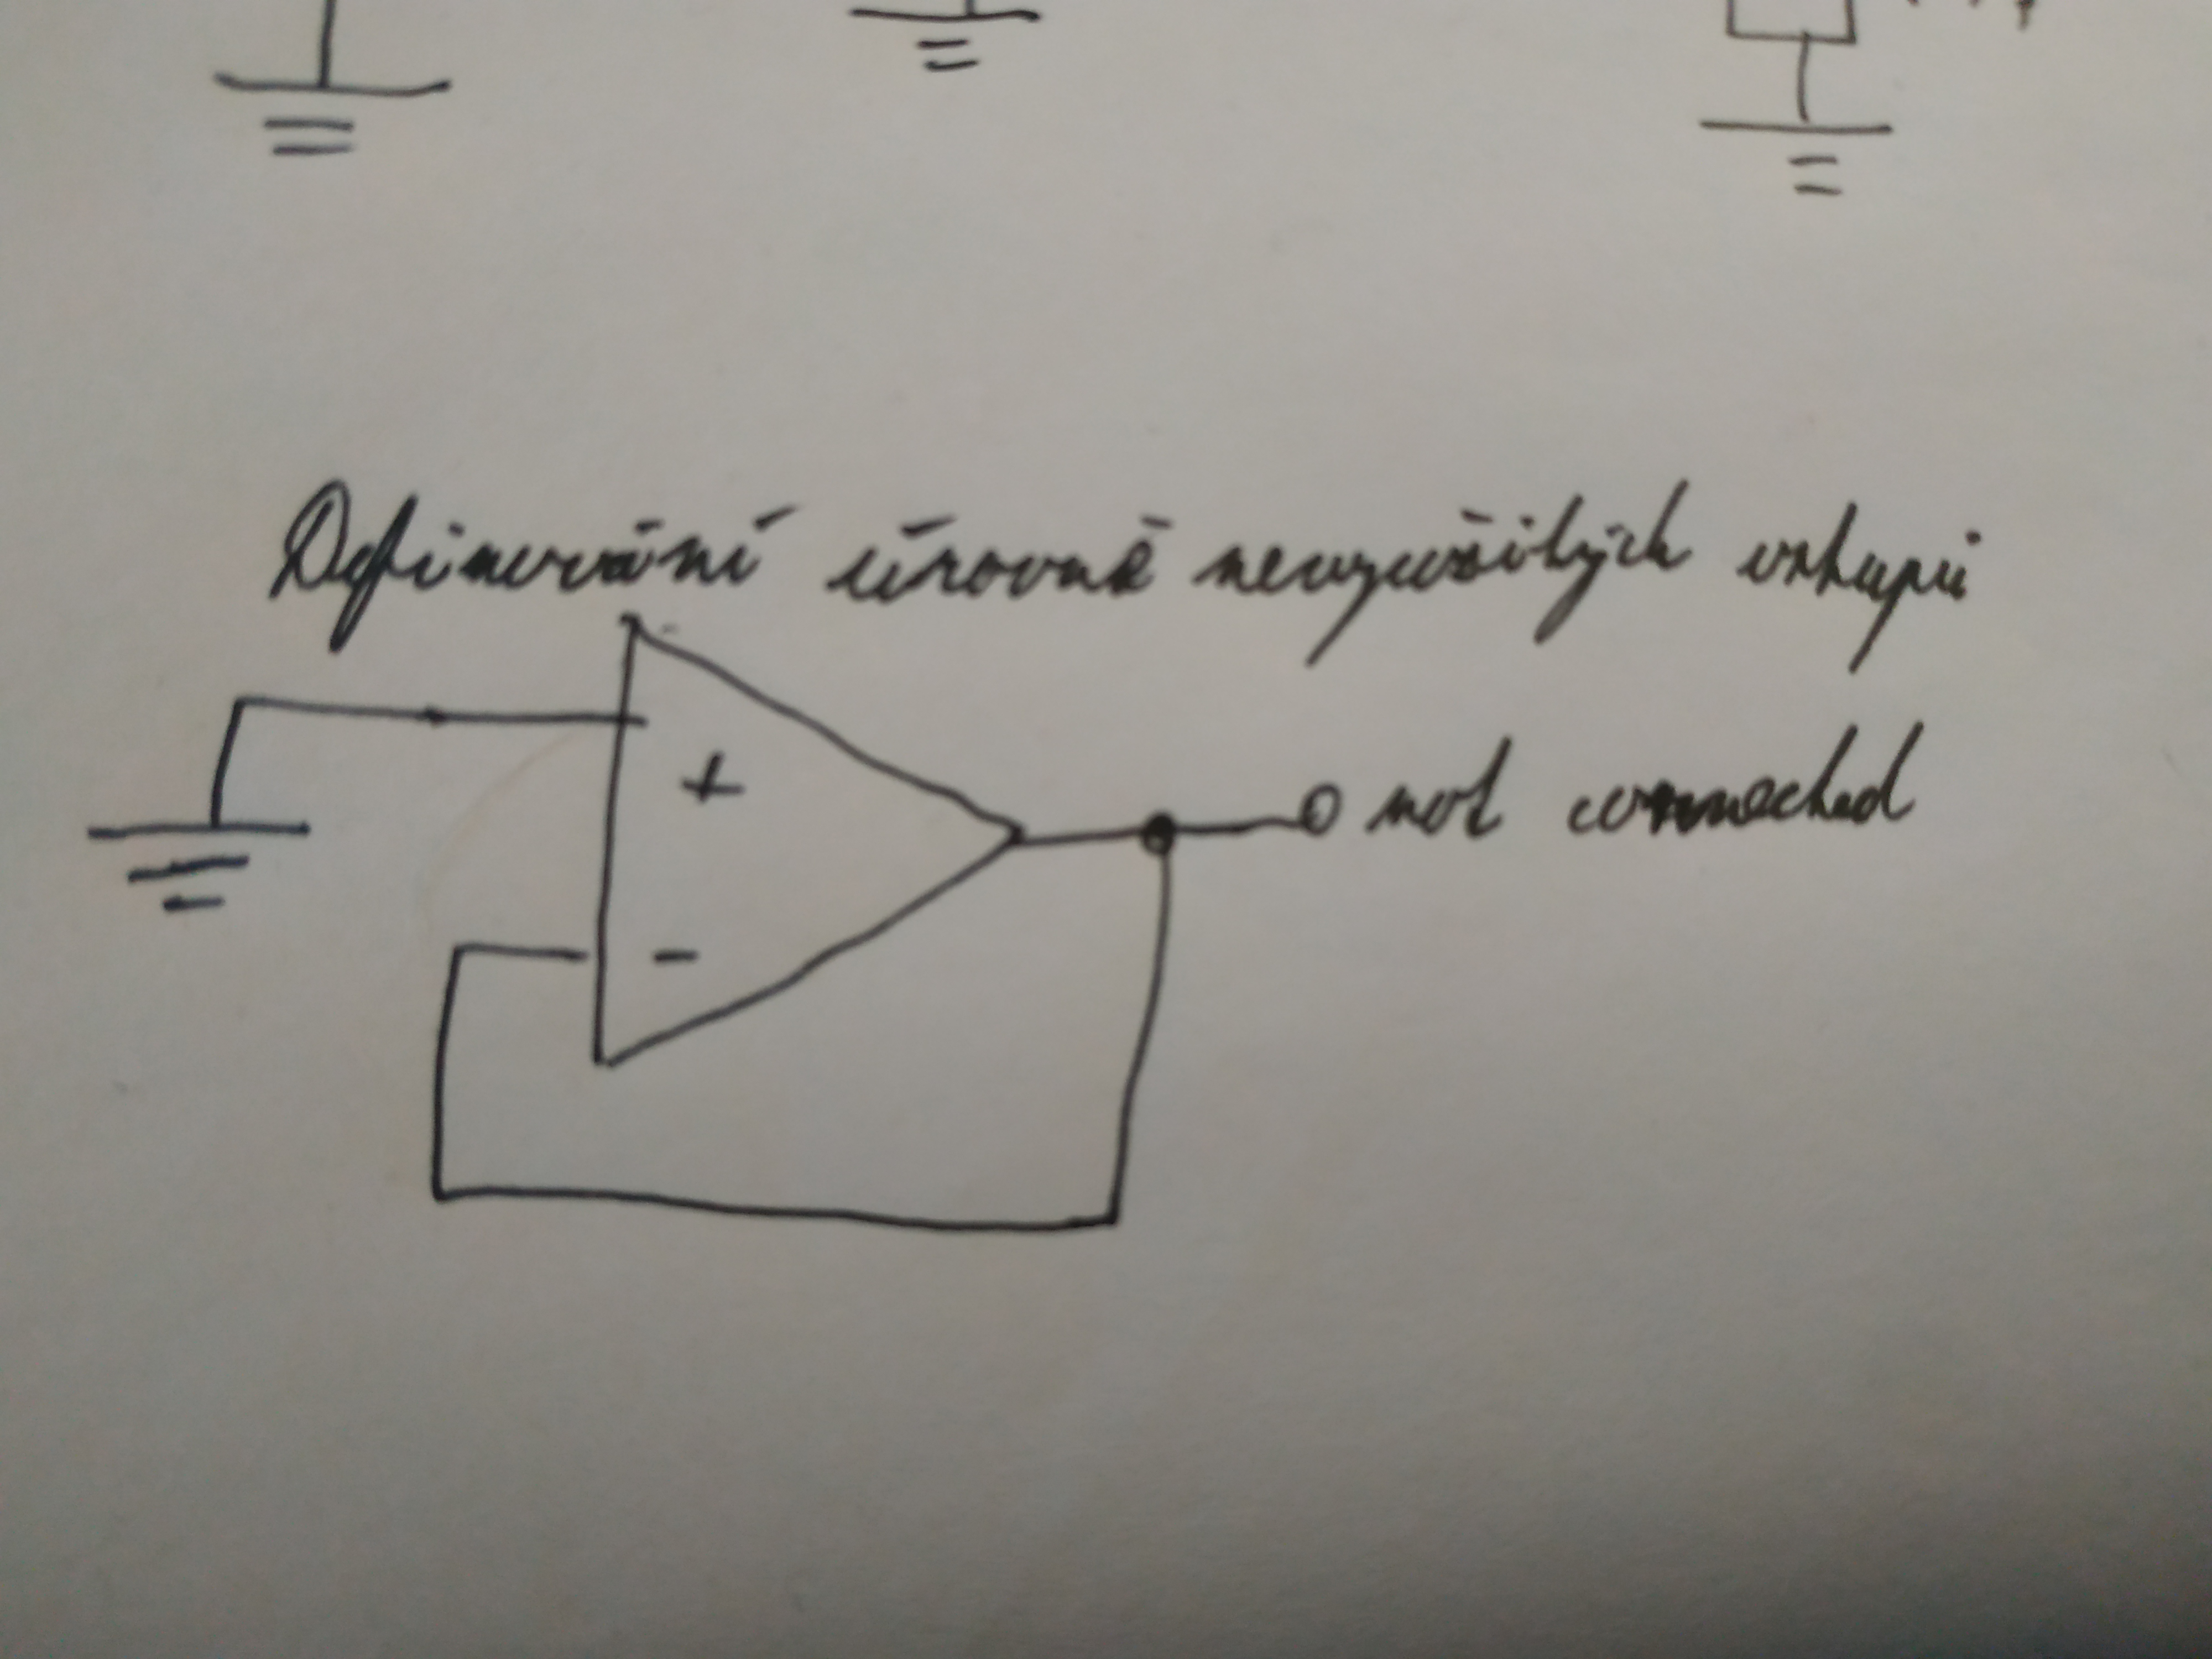 Definování úrovně nevyužitých vstupů
+
not connected
-